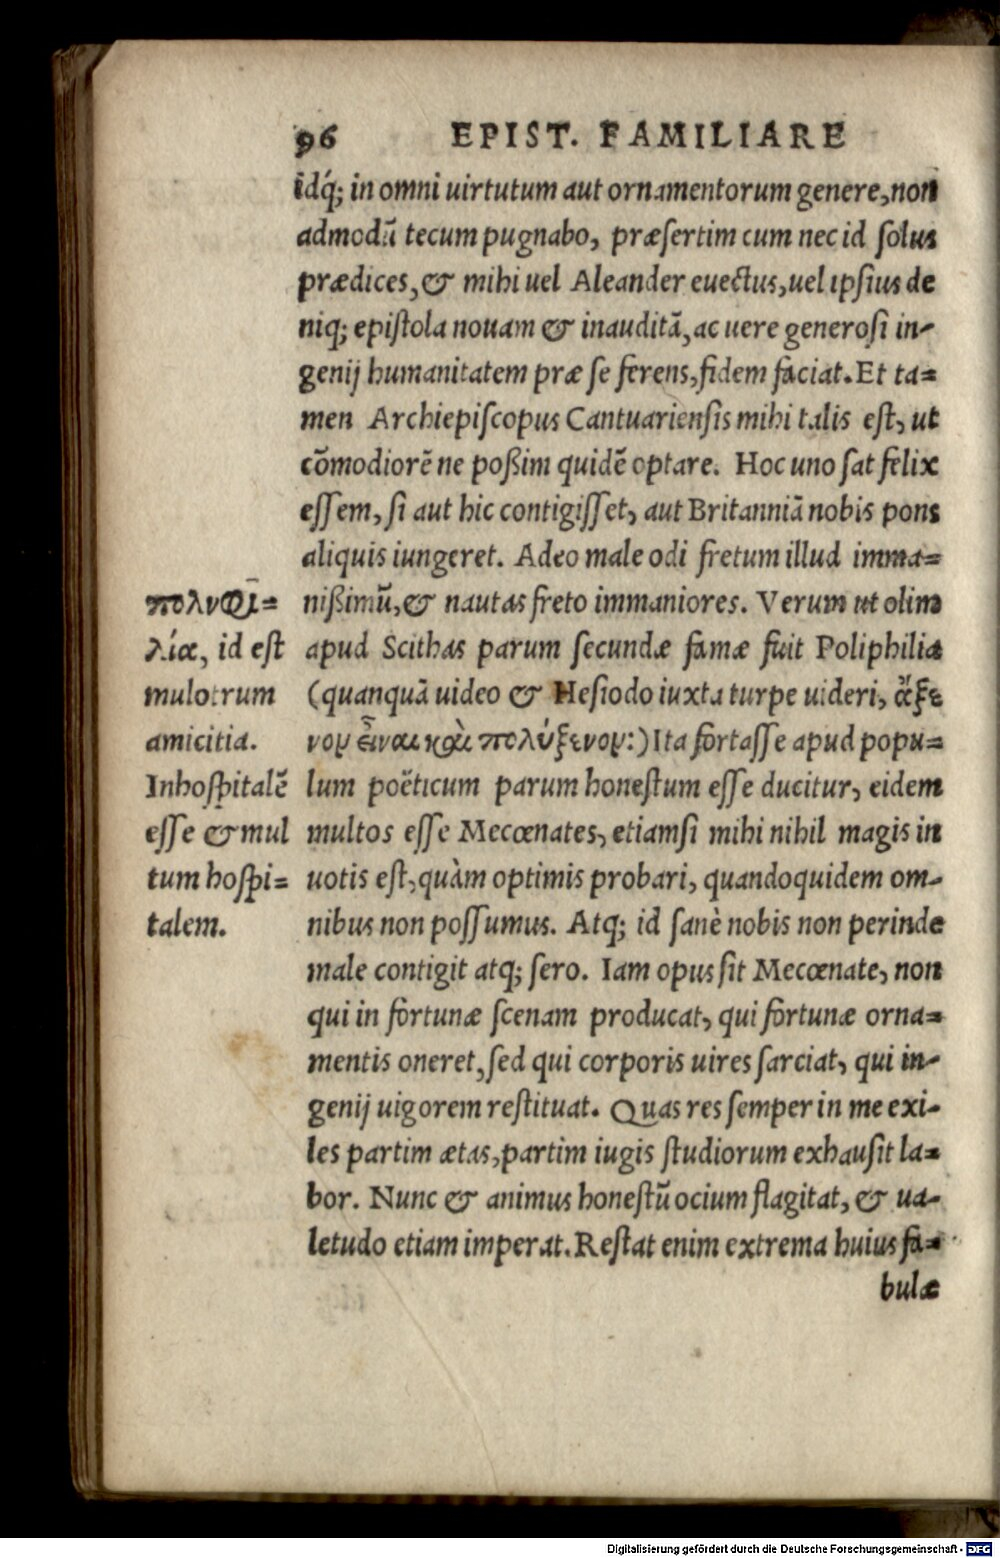 96 EPIST. FAMILIARE
idq́; in omni uirtutum aut ornamentorum genere, non
admodũ tecum pugnabo, præsertim cum nec id solus
prædices, & mihi uel Aleander euectus, uel ipsius de
niq; epistola nouam & inauditã, ac uere generosi in-
genij humanitatem præ se ferens, fidem faciat. Et ta=
men Archiepiscopus Cantuariensis mihi talis est, ut
cõmodiorẽ ne poßim quidẽ optare. Hoc uno sat felix
essem, si aut hic contigisset, aut Britanniã nobis pons
aliquis iungeret. Adeo male odi fretum illud imma=
nißimũ, & nautas freto immaniores. Verum ut olim
apud Scithas parum secundæ famæ fuit Poliphilia
(quanquã uideo & Hesiodo iuxta turpe uideri, ἄξε
νον εἶναι καὶ πολύξενον:) Ita fortasse apud popu=
lum poëticum parum honestum esse ducitur, eidem
multos esse Mecœnates, etiamsi mihi nihil magis in
uotis est, quàm optimis probari, quandoquidem om-
nibus non possumus. Atq; id sanè nobis non perinde
male contigit atq; sero. Iam opus sit Mecœnate, non
qui in fortunæ scenam producat, qui fortunæ orna=
mentis oneret, sed qui corporis uires sarciat, qui in-
genij uigorem restituat. Quas res semper in me exi-
les partim ætas, partim iugis studiorum exhausit la=
bor. Nunc & animus honestũ ocium flagitat, & ua-
letudo etiam imperat. Restat enim extrema huius fa=
bulæ
πολυφι=
λία, id est
mulotrum
amicitia.
Inhospitalẽ
esse & mul
tum hospi=
talem.
Digitalisierung gefördert durch die Deutsche Forschungsgemeinschaft - DFG